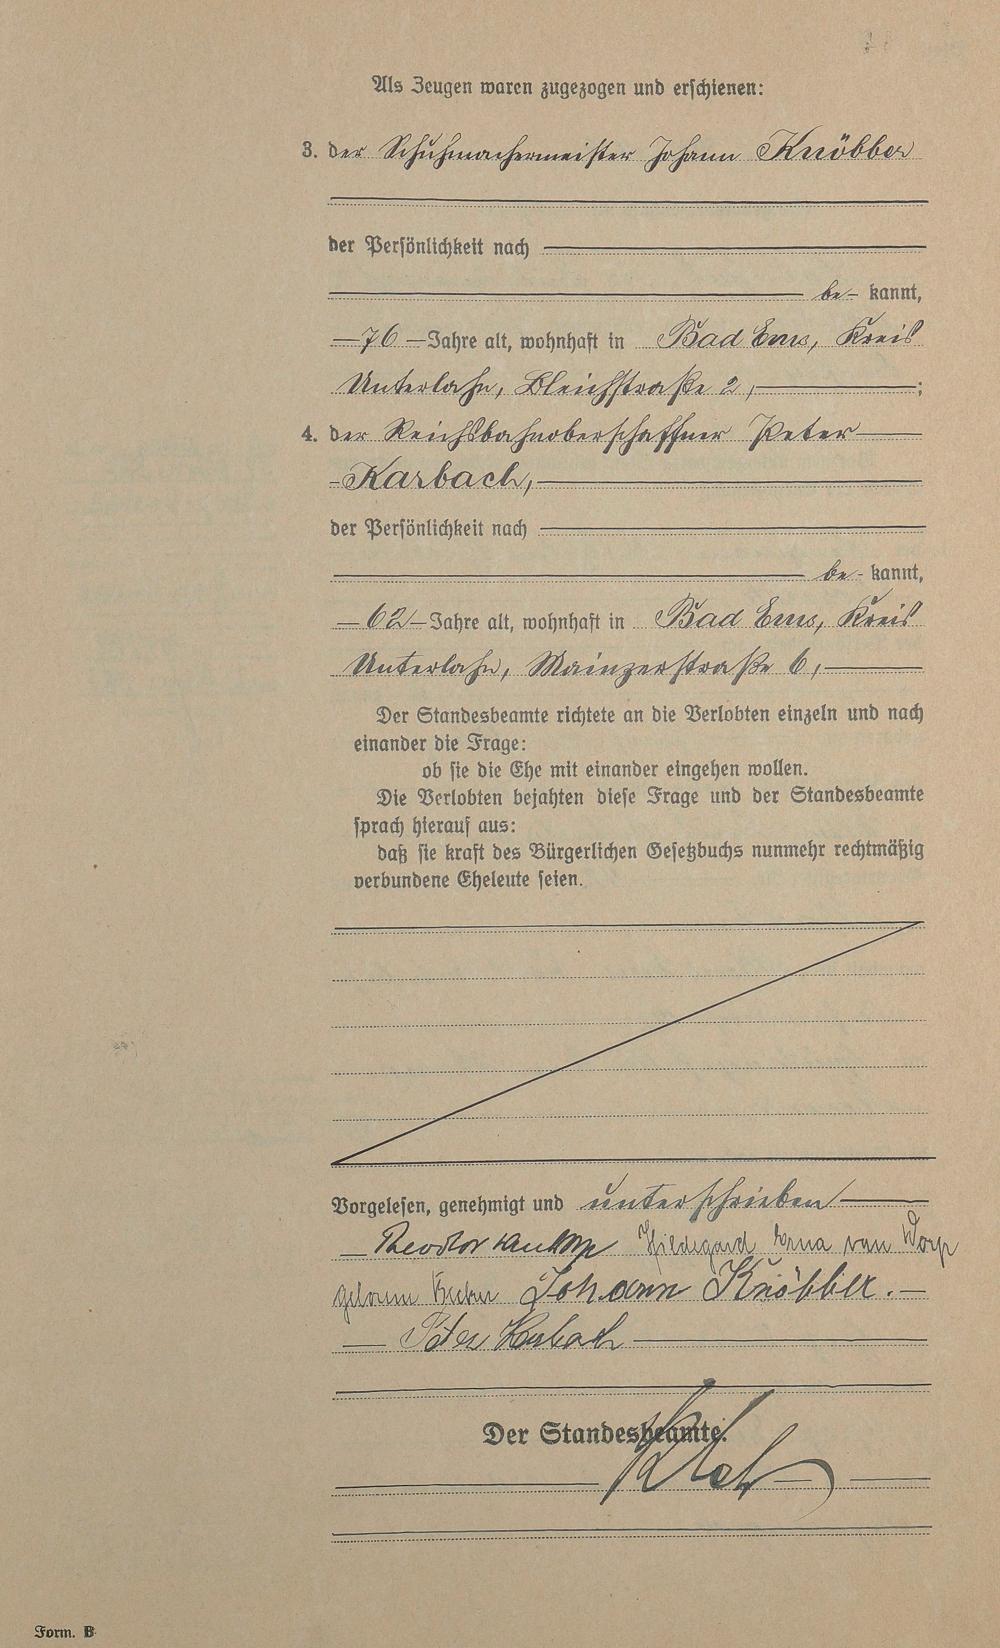 Als Zeugen waren zugezogen und erschienen:
3. der Schuhmachermeister Johann Knöbber
der Persönlichkeit nach
be- kannt,
- 76 - Jahre alt, wohnhaft in Bad Ems, Kreis
Unterlahn, Bleichstraße 2, ;
4. der Reichsbahnoberschaffner Peter
Karbach,
der Persönlichkeit nach
be- kannt,
- 62 - Jahre alt, wohnhaft in Bad Ems, Kreis
Unterlahn, Mainzerstraße 6,
Der Standesbeamte richtete an die Verlobten einzeln und nach
einander die Frage:
ob sie die Ehe mit einander eingehen wollen.
Die Verlobten bejahten diese Frage und der Standesbeamte
sprach hierauf aus:
daß sie kraft des Bürgerlichen Gesetzbuchs nunmehr rechtmäßig
verbundene Eheleute seien.
Vorgelesen, genehmigt und unterschrieben
Theodor van Worp Hildegard Erna van Worp
geborene Johann Knöbber.
Peter Karbach
Der Standesbeamte.
Form. B